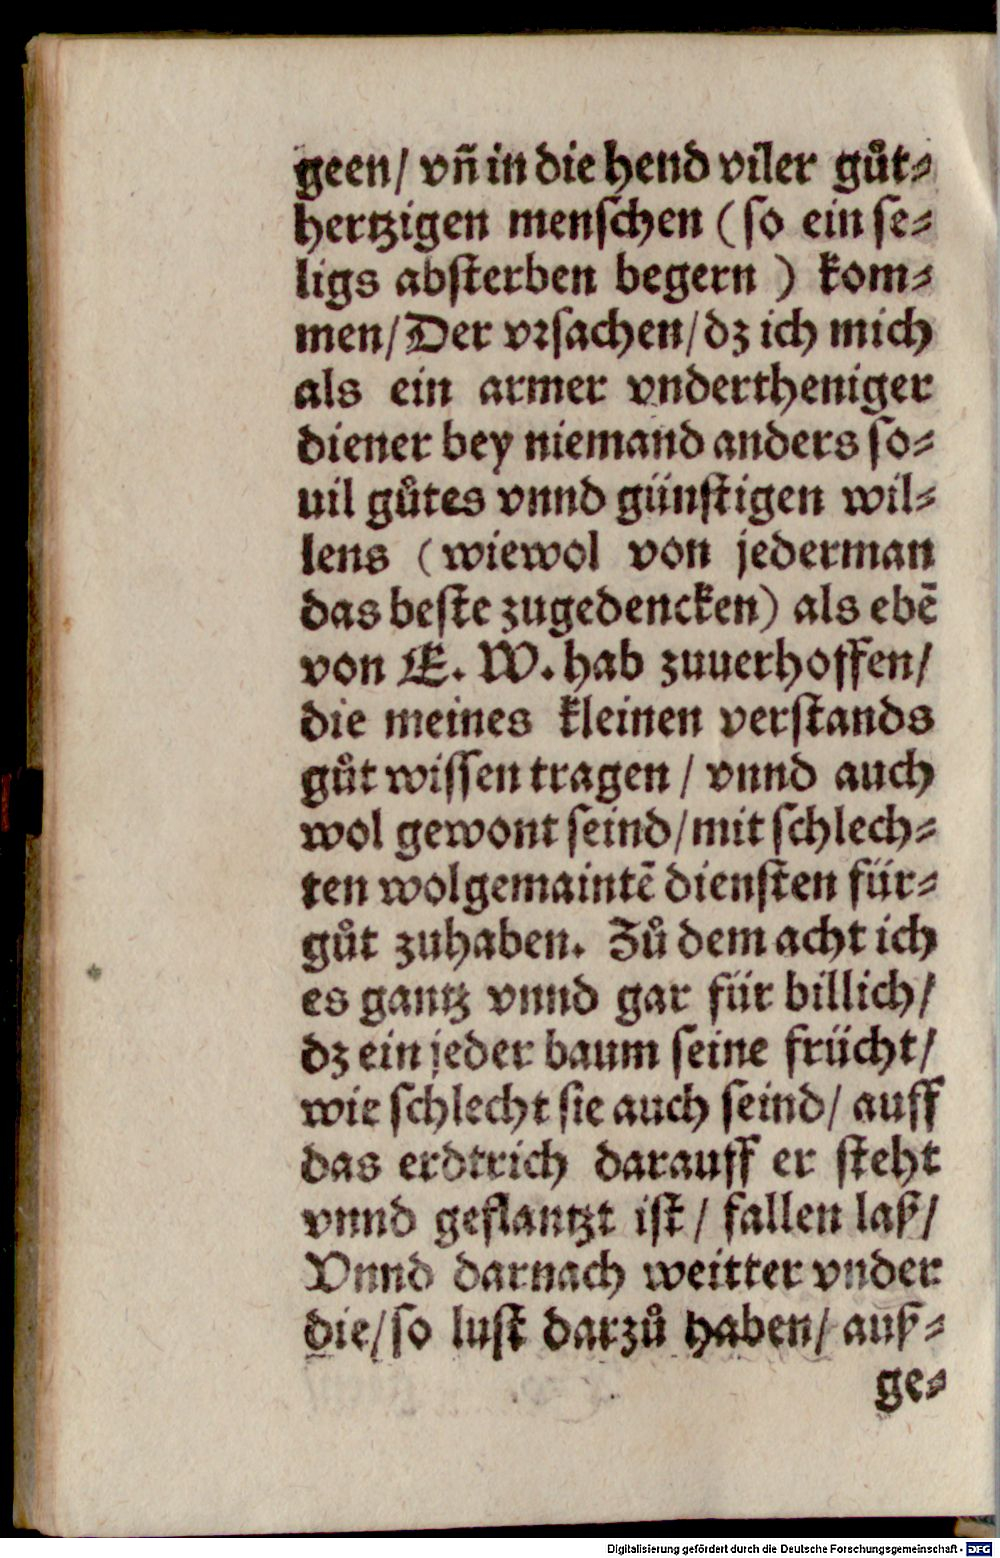 geen/ vñ in die hend viler gůt⸗
hertzigen menschen (so ein se⸗
ligs absterben begern) kom⸗
men/ Der vrsachen/ dz ich mich
als ein armer vndertheniger
diener bey niemand anders so⸗
uil gůtes vnnd günstigen wil⸗
lens (wiewol von jederman
das beste zugedencken) als ebē
von E. W. hab zuuerhoffen/
die meines kleinen verstands
gůt wissen tragen/ vnnd auch
wol gewont seind/ mit schlech⸗
ten wolgemaintē diensten für⸗
gůt zuhaben. Zů dem acht ich
es gantz vnnd gar für billich/
dz ein jeder baum seine frücht/
wie schlecht sie auch seind/ auff
das erdtrich darauff er steht
vnnd geflantzt ist/ fallen laß/
Vnnd darnach weitter vnder
die/ so lust darzů haben/ auß⸗
ge⸗
Digitalisierung gefördert durch die Deutsche Forschungsgemeinschaft - DFG